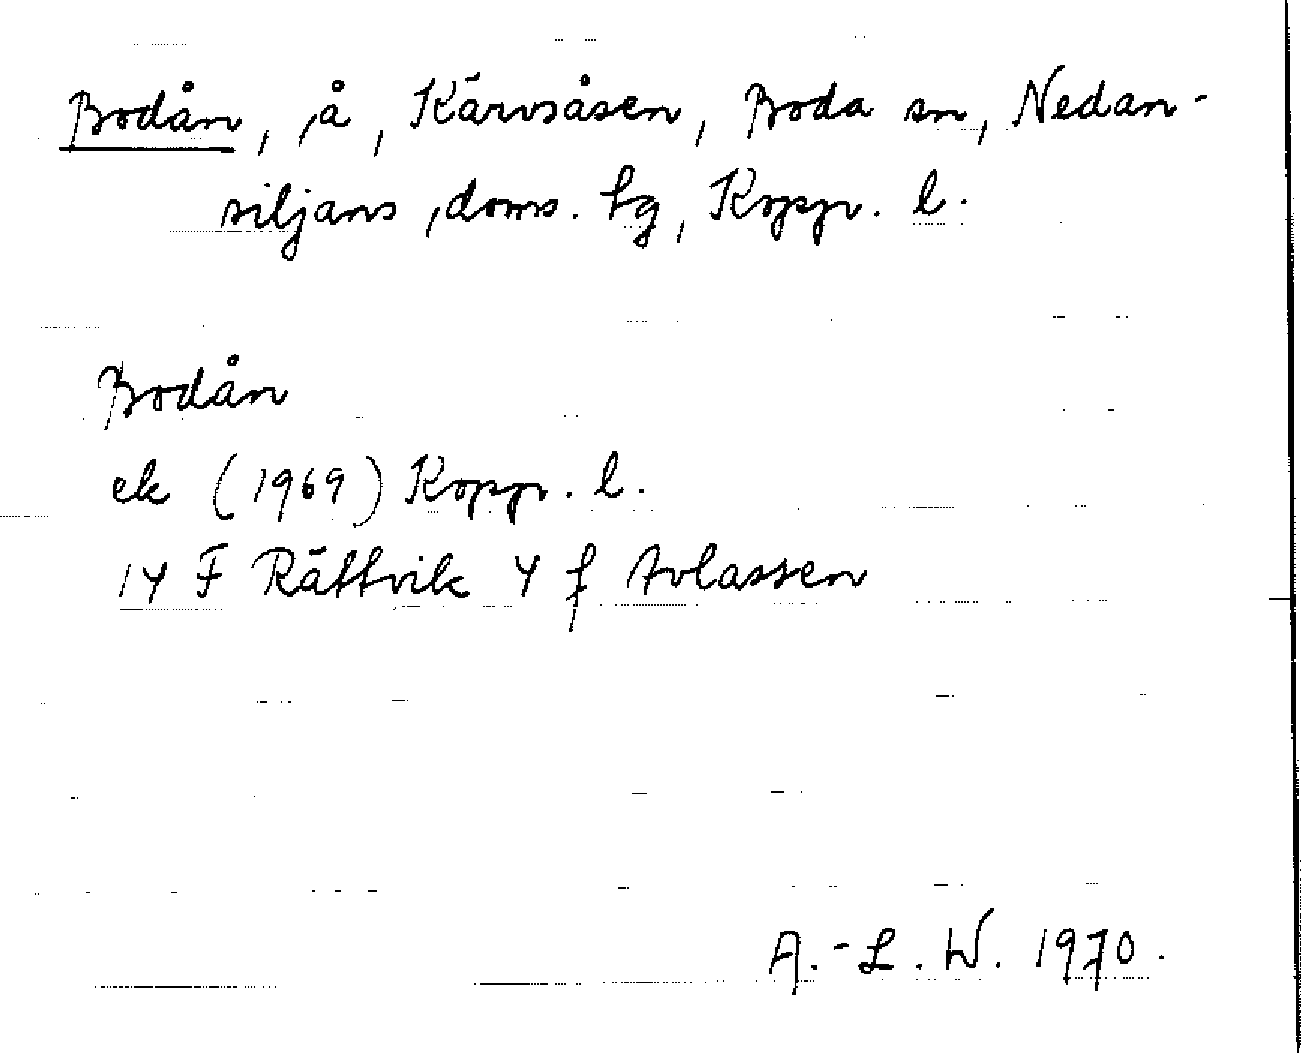 Bodån, å, Kärvsåsen, Boda sn, Nedan-
siljans doms. tg, Kopp. l.
Bodån
ek (1969) Kopp. l.
14 F Rättvik 4 f Avlassen
A.-L. W. 1970.